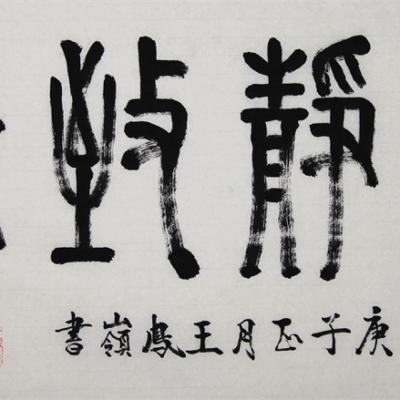 靜致
庚子正月王鳳嶺書